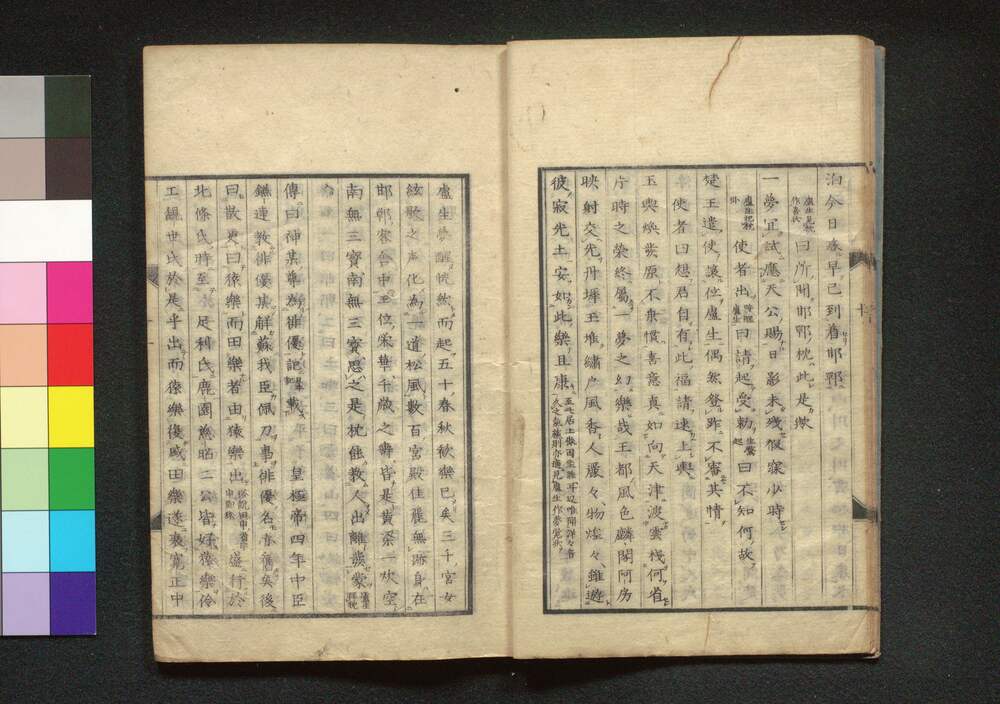 泊今日旅早已到着邯鄲
盧生見枕作喜状曰所聞邯鄲枕此是歟
一夢宜試應天公賜日影未殘假寐少時
盧生把枕臥使者出呼醒盧生曰請起受勅生驚起曰不知何故
楚王遣使讓位盧生偶然登祚不審其情
使者曰想君自有此福請速上輿
玉輿煥發原不乗慣喜意真如向天津渡雲棧何省
片時之榮終屬一夢之幻樂哉王都風色麟閣阿房
映射交光丹墀玉堆繍戸風香人嚴々物燦々雖遊
彼寂光土安如此樂且康
盧生夢醒恍然而起五十春秋歓樂已矣三千宮女
絃歌之声化為一道松風數百宮殿住麗無跡身在
邯鄲客舎中王位榮華千歳之壽皆是黄粱一炊空
南無三寶南無三寶思之是枕能教人出離發蒙盧生拝枕
傳曰神某尊為俳優記皇極帝四年中臣
鎌連教俳優其解蘇我臣佩刀事俳優名旧矣後
曰散更曰猿樂而田樂者由猿樂出盛行於
北條氏時至足利氏鹿園慈昭二公皆好猿樂伶
工観世氏於是乎出而猿樂復盛田樂遂衰寛正中